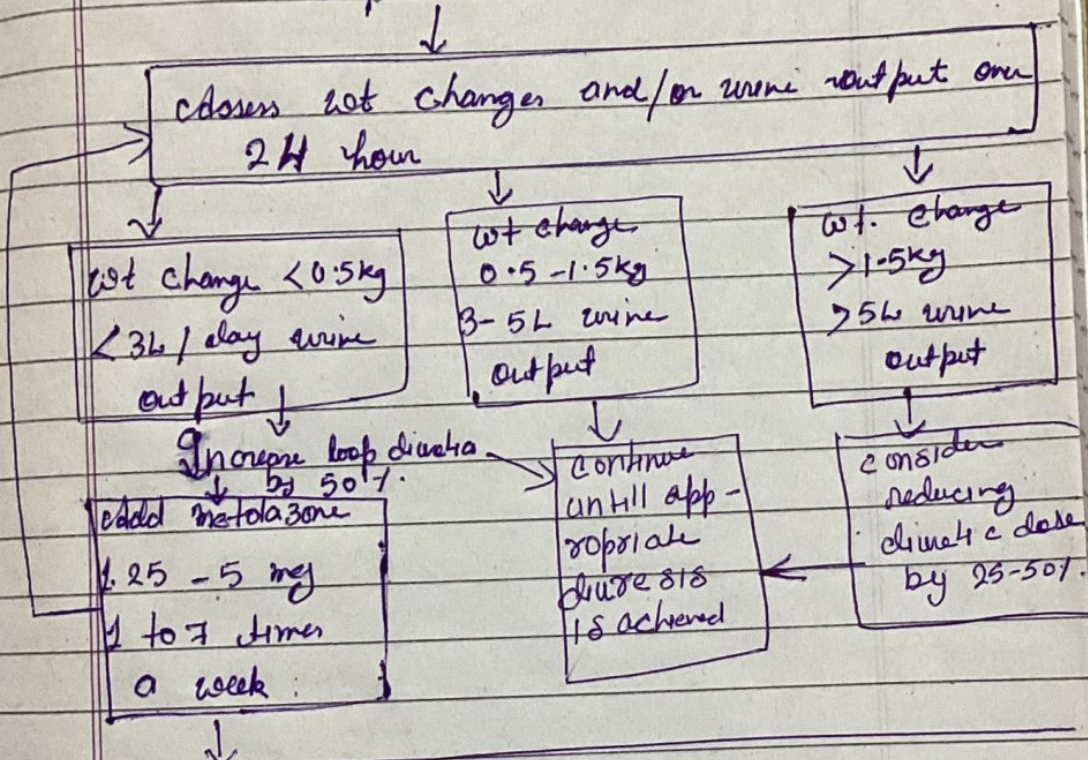 Assess wt changes and/or urine output over
24 hour
wt change <0.5kg
<3L / day urine
output
wt change
0.5-1.5kg
3-5L urine
output
wt. change
>1.5kg
>5L urine
output
Increase loop diuretic
by 50%.
Add metolazone
1.25 - 5 mg
1 to 7 times
a week :
continue
untill app-
ropriate
diuresis
is achieved
consider
reducing
diuretic dose
by 25-50%.